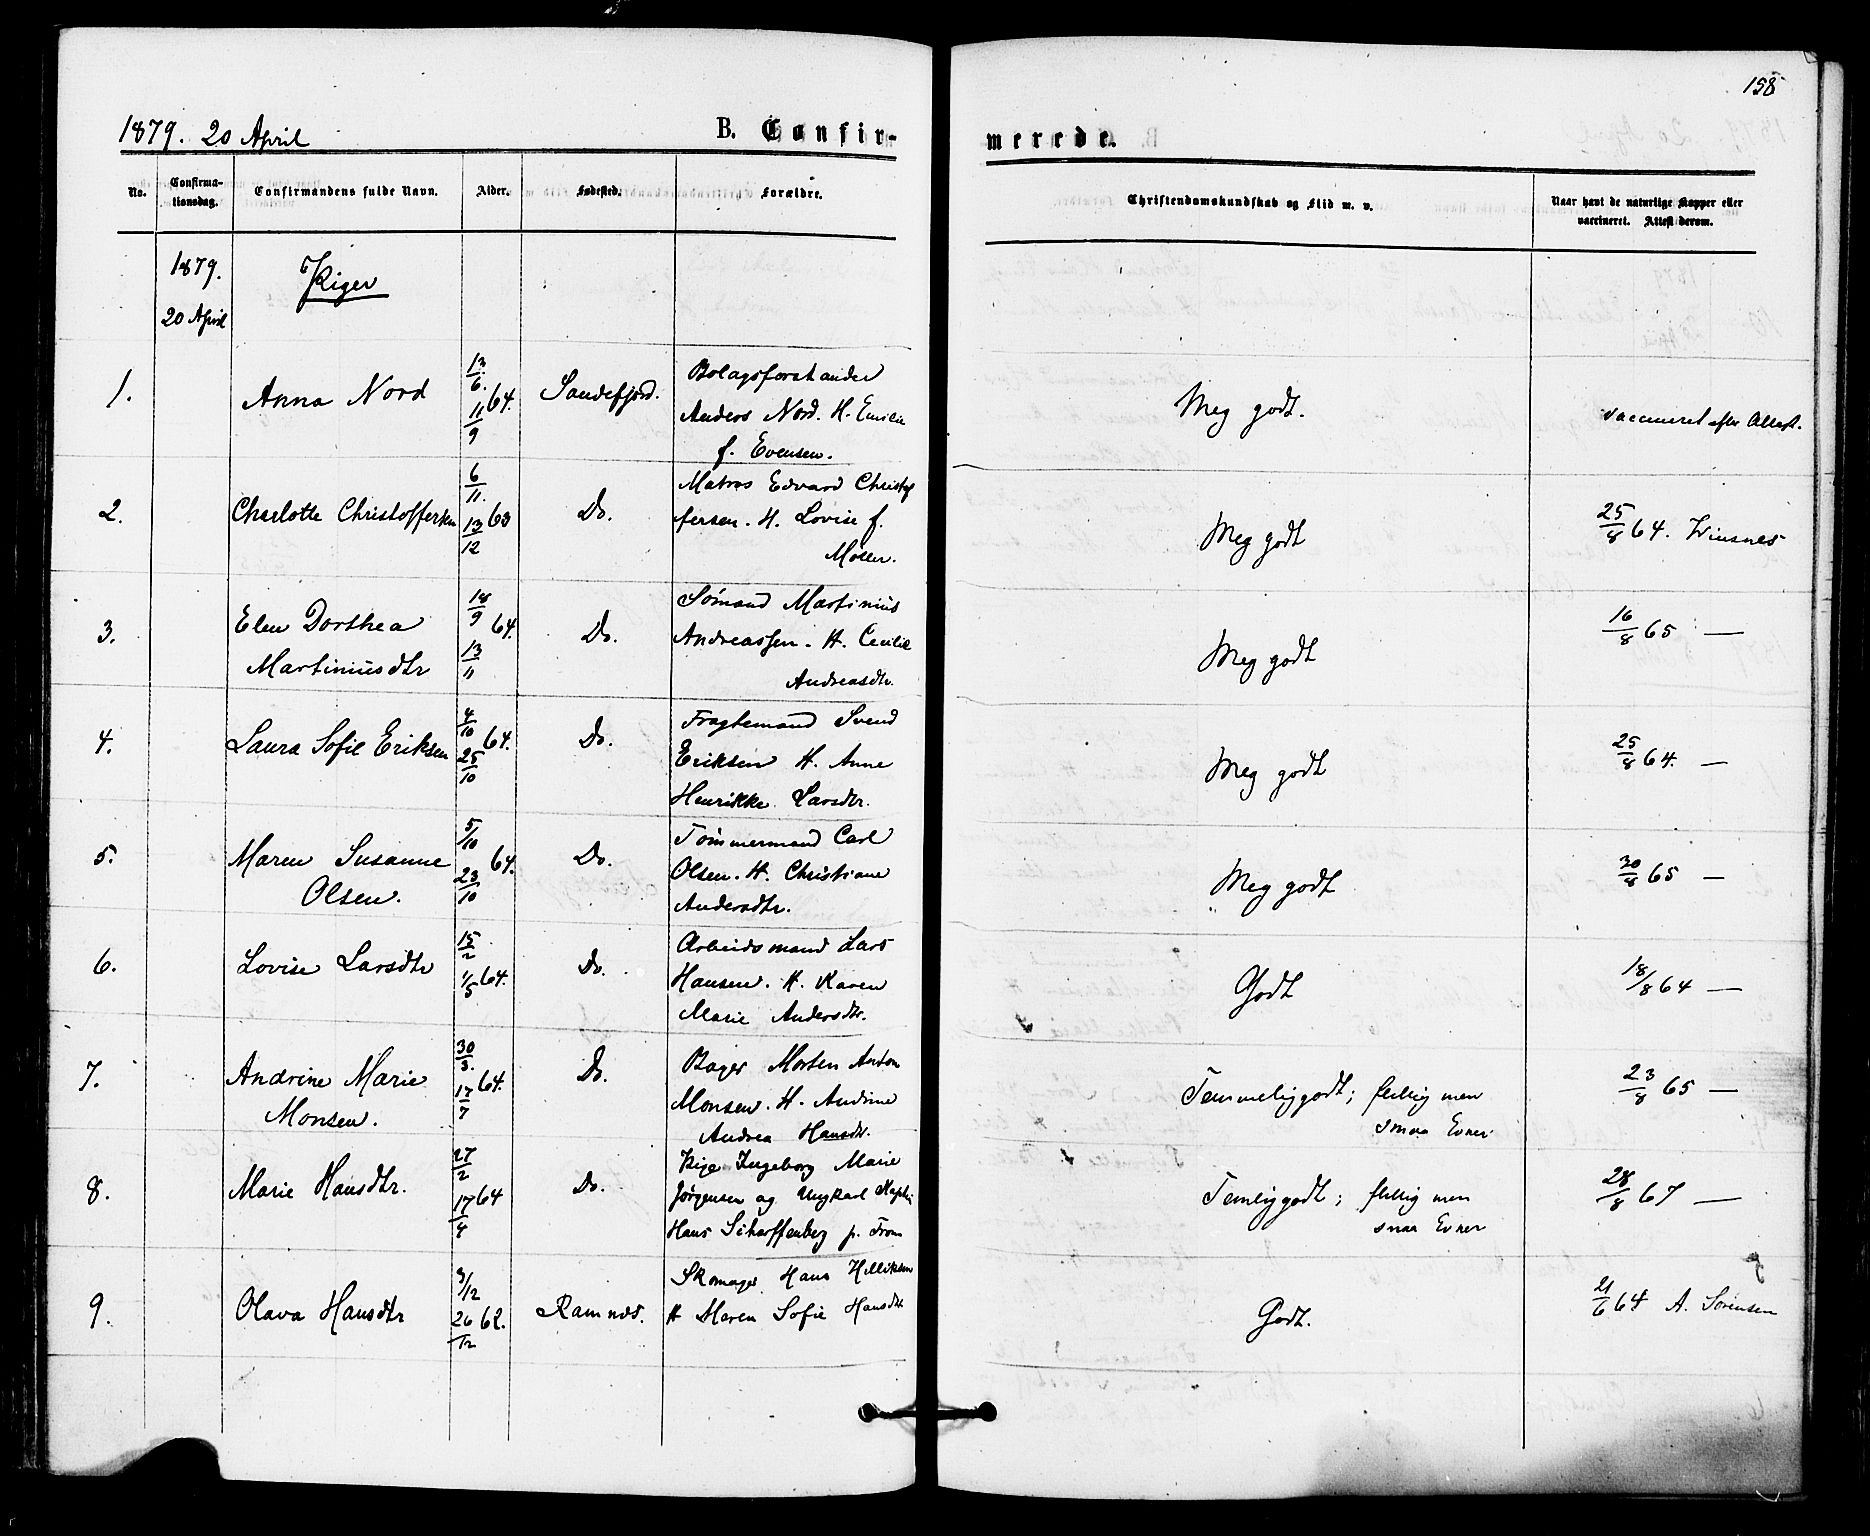 158
1879. 20 April
B. Confir-
merede.
No.
Confirma-
tionsdag.
Confirmandens fulde Navn.
Alder.
Fødested.
Forældre.
Christendomskundskab og Flid m. v.
Naar havt de naturlige Kopper eller
vaccineret. Attest derom.
1879.
20 April
Piger
1.
Anna Nord
13/6. 64. 11/9
Sandefjord.
Bolagsforstander
Anders Nord. H. Emilie
f. Evensen.
Meg godt.
vaccineret efter Attest.
2.
Charlotte Christoffersen
6/11. 63 13/12
Do.
Matros Edvard Christof
fersen. H. Lovise f.
Mosen.
Meg godt
25/8 64. Winsnes
3.
Elen Dorthea
Martiniusdtr
18/9 64. 13/11
Do.
Sømand Martinius
Andreassen. H. Cecilie
Andreasdtr.
Meg godt
16/8 65 —
4.
Laura Sofie Eriksen
4/10 64. 25/10
Do.
Fragtemand Svend
Eriksen H. Anne
Henrikke Larsdtr.
Meg godt
25/8 64. —
5.
Maren Susanne
Olsen.
5/10 64. 23/10
Do.
Tømmermand Carl
Olsen. H. Christiane
Andersdtr.
Meg godt
30/8 65 —
6.
Lovise Larsdtr
15/2 64. 1/5
Do.
Arbeidsmand Lars
Hansen. H. Karen
Marie Andersdtr.
Godt
18/8 64 —
7.
Andrine Marie
Monsen.
30/3. 64. 17/7
Do.
Bager Morten Anton
Monsen. H. Andrine
Andrea Hansdtr.
Temmeliggodt; flittig men
smaa Evner
23/8 65 —
8.
Marie Hansdtr.
27/2 64 17/4
Do.
Pige Ingeborg Marie
Jørgensen og Ungkarl
Hans Scharffenberg p. Trom
Temliggodt; flittig men
smaa Evner
28/8 67 —
9.
Olava Hansdtr
9/12 62. 26/12
Ramnæs.
Skomager Hans Helliksen
H Maren Sofie Hansdtr
Godt.
21/6 64 A. Sørensen